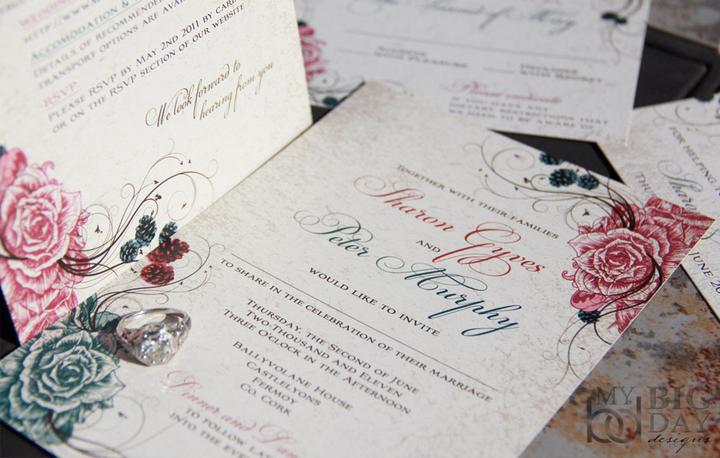 HTTP://WWW.M
ACCOMODATION &
DETAILS OF RECOMMENDED
TRANSPORT OPTIONS ARE AVAI
RSVP
PLEASE RSVP BY MAY 2ND 2011 BY CAR
OR ON THE RSVP SECTION OF OUR WEBSITE
We look forward to
hearing from you
TOGETHER WITH THEIR FAMILIES
Sharon Gyves
AND
Peter Murphy
WOULD LIKE TO INVITE
TO SHARE IN THE CELEBRATION OF THEIR MARRIAGE
THURSDAY, THE SECOND OF JUNE
TWO THOUSAND AND ELEVEN
THREE O'CLOCK IN THE AFTERNOON
BALLYVOLANE HOUSE
CASTLELYONS
FERMOY
CO. CORK
Dinner and Dan
TO FOLLOW LATE
INTO THE
IF YOU HAVE ANY
DIETARY RESTRICTIONS THAT
WE NEED TO BE AWARE OF
FOR HELPING
MY BIG
bd DAY
designs